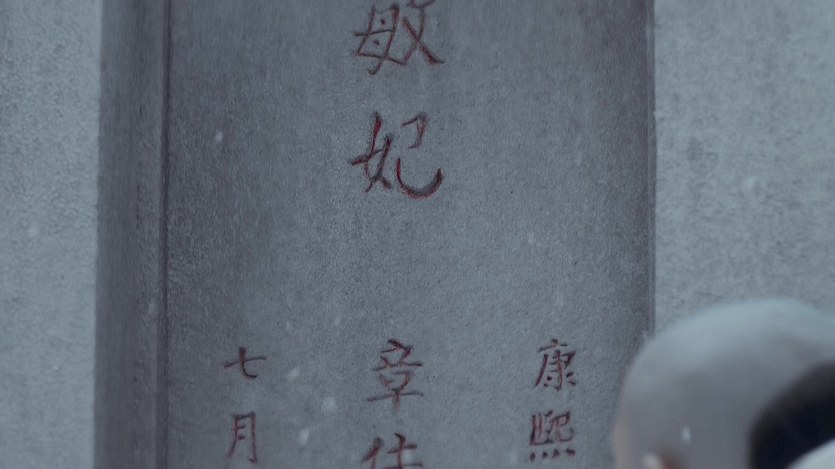 康熙
敏妃
章佳
七月